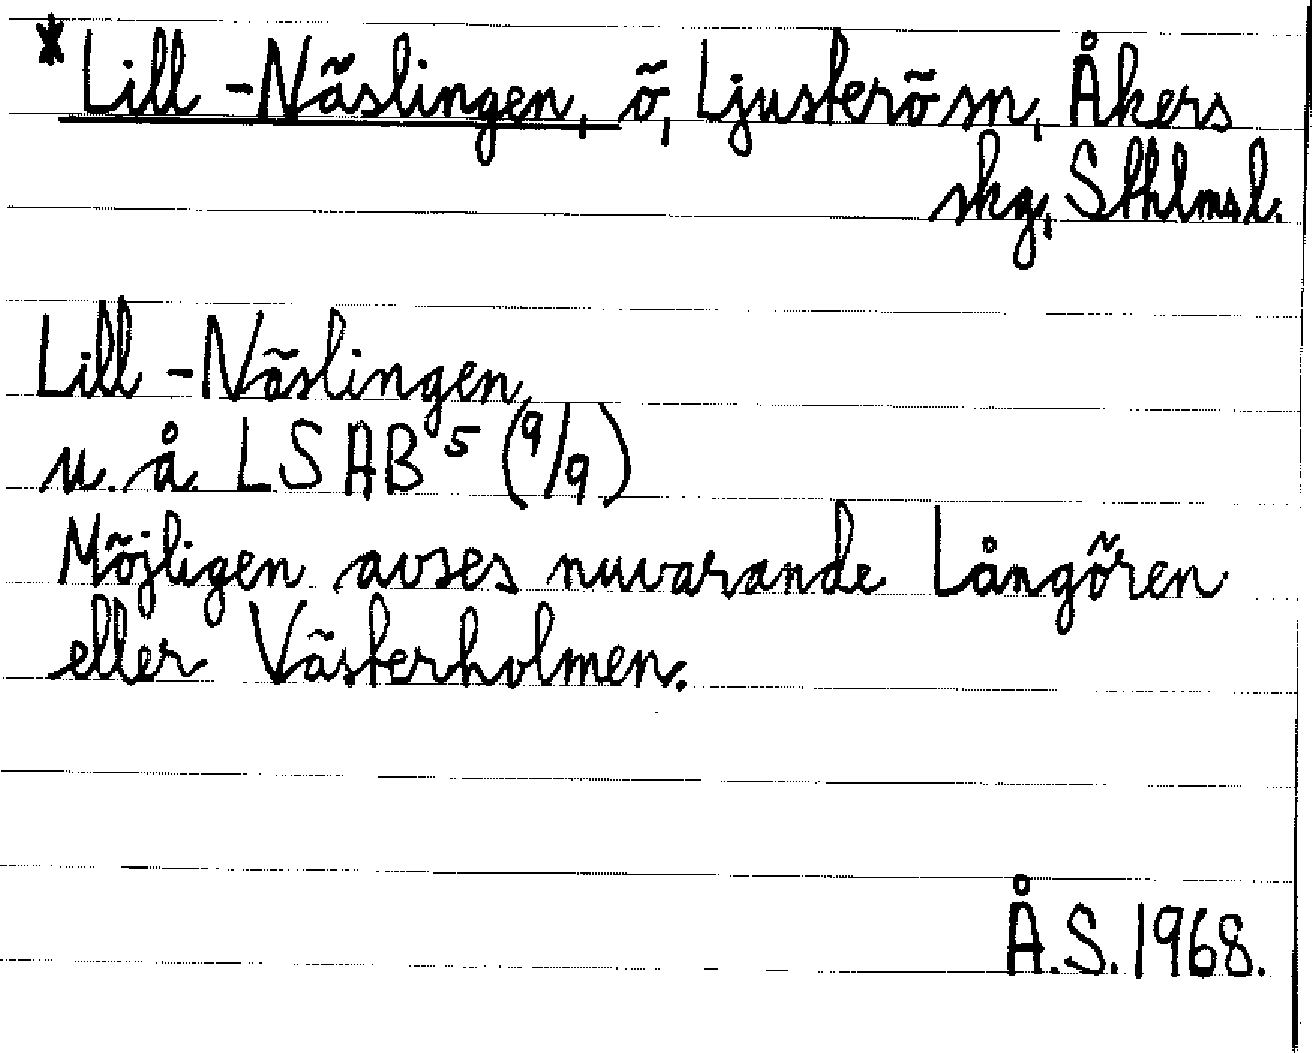 * Lill-Näslingen, ö, Ljusterö sn, Åkers
skg, Sthlms l.
Lill-Näslingen
u. å. LSA B5 (9/9)
Möjligen avses nuvarande Långören
eller Västerholmen.
Å.S. 1968.